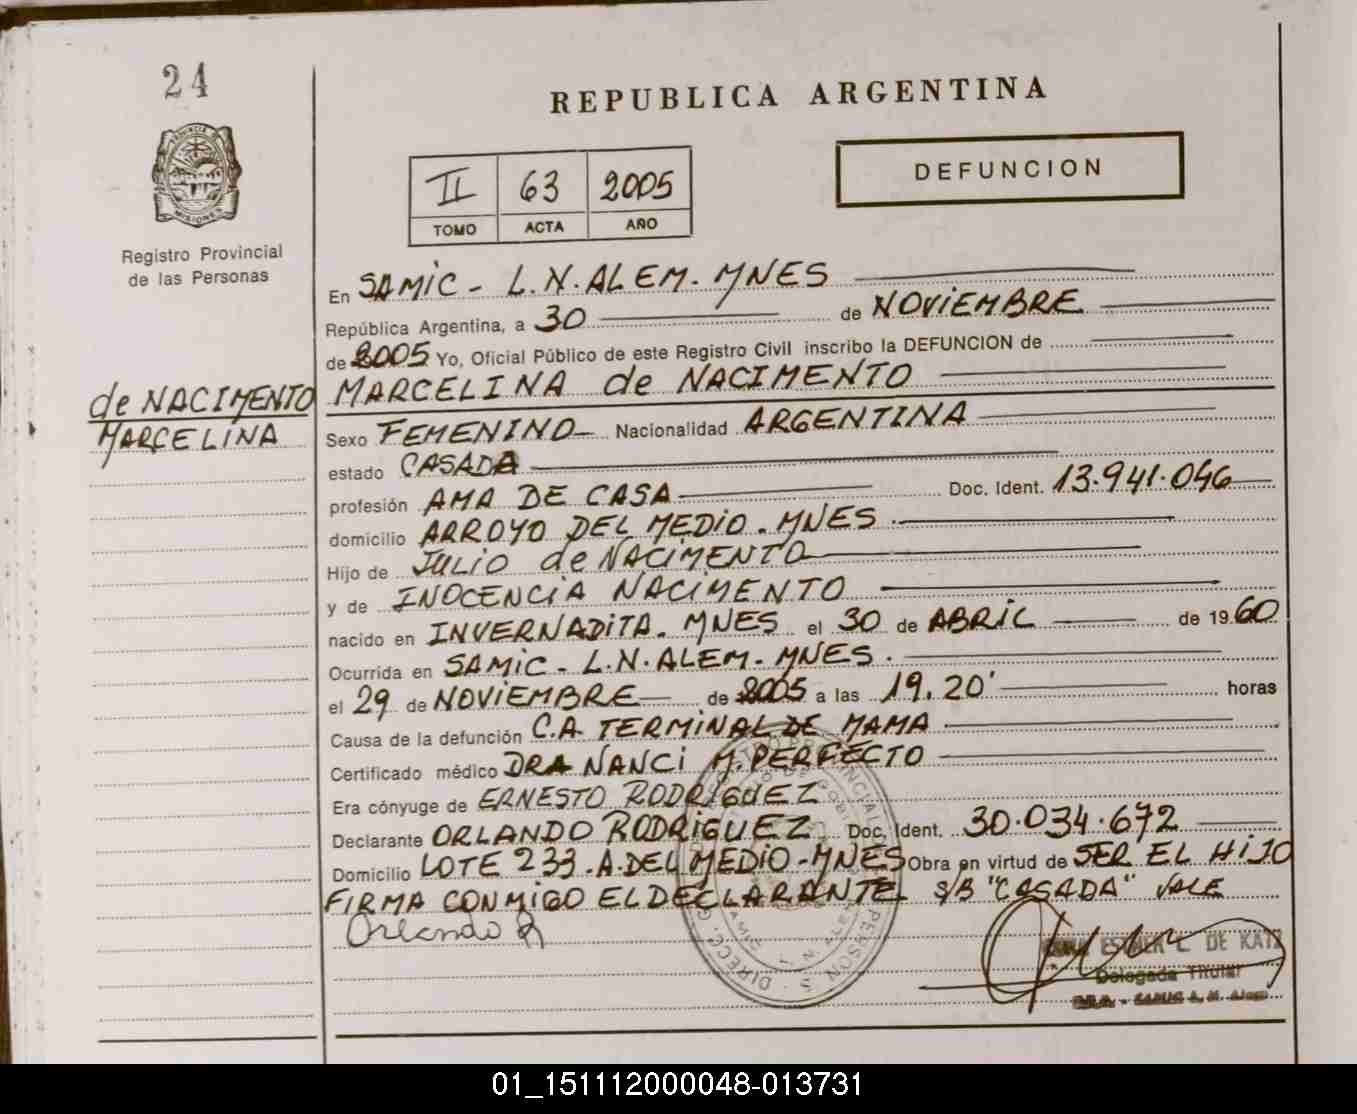 24
REPUBLICA ARGENTINA
PROVINCIA D
MISIONES
Registro Provincial
de las Personas
II 63 2005
TOMO ACTA AÑO
DEFUNCION
En SAMIC - L.N.ALEM. MNES
República Argentina, a 30 de NOVIEMBRE
de 2005 Yo, Oficial Público de este Registro Civil inscribo la DEFUNCION de
de NACIMENTO
MARCELINA
MARCELINA de NACIMENTO
Sexo FEMENINO Nacionalidad ARGENTINA
estado CASADA
profesión AMA DE CASA Doc. Ident. 13.941.046
domicilio ARROYO DEL MEDIO. MNES.
Hijo de JULIO de NACIMENTO
y de INOCENCIA NACIMENTO
nacido en INVERNADITA. MNES el 30 de ABRIL de 1960
Ocurrida en SAMIC - L.N.ALEM - MNES.
el 29 de NOVIEMBRE de 2005 a las 19.20' horas
Causa de la defunción C.A. TERMINAL DE MAMA
Certificado médico DRA NANCI M. PERFECTO
Era cónyuge de ERNESTO RODRIGUEZ
Declarante ORLANDO RODRIGUEZ Doc. Ident. 30.034.672
Domicilio LOTE 233. A. DEL MEDIO - MNES Obra en virtud de SER EL HIJO
FIRMA CONMIGO EL DECLARANTE. S/B "CASADA" VALE
Orlando R
ESTHER L. DE KATZ
Delegada Titular
01_151112000048-013731